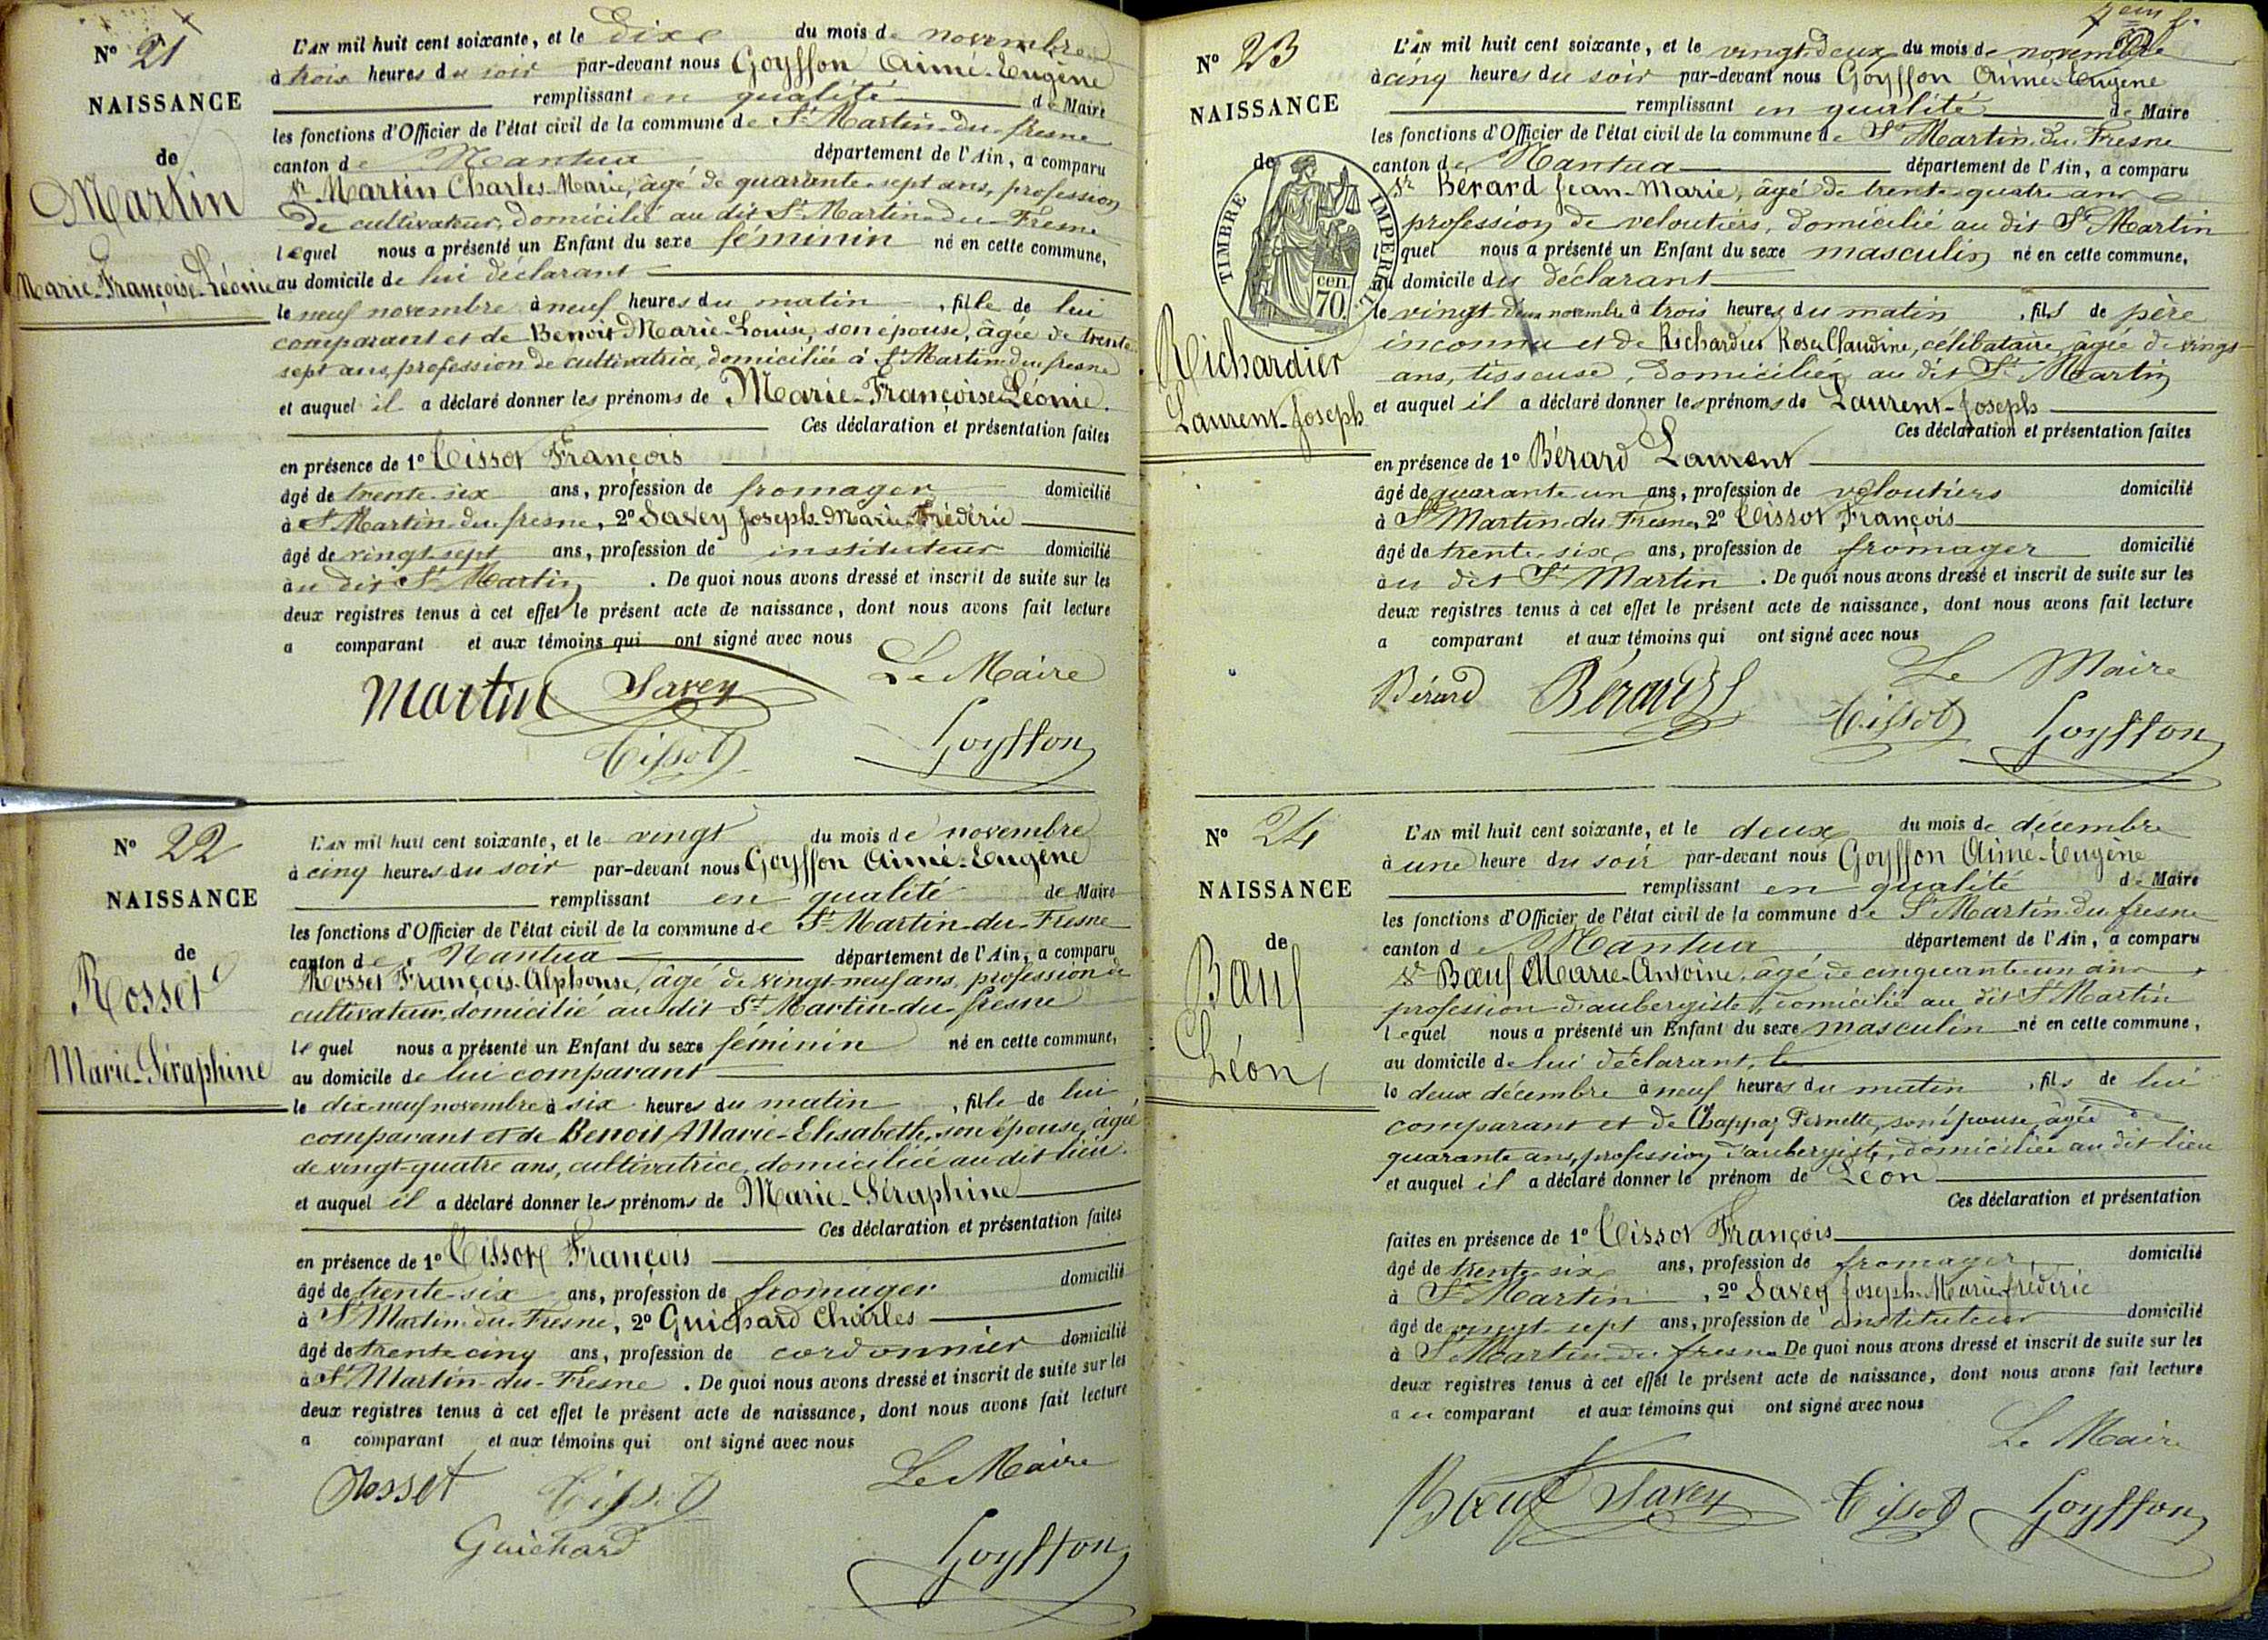 N° 21
NAISSANCE
de
Martin
Marie-Françoise-Léonie
L'AN mil huit cent soixante, et le dix du mois de novembre
à trois heures du soir par-devant nous Goyffon Aimé-Eugène
remplissant en qualité de Maire
les fonctions d'Officier de l'état civil de la commune de St Martin-du-fresne
canton de Nantua département de l'Ain, a comparu
Sr Martin Charles-Marie, âgé de quarante-sept ans, profession
de cultivateur, domicilié au dit St Martin-du-Fresne
lequel nous a présenté un Enfant du sexe féminin né en cette commune,
au domicile de lui déclarant
le neuf novembre à neuf heures du matin, fille de lui
comparant et de Benoit Marie-Louise, son épouse, âgée de trente-
sept ans, profession de cultivatrice, domiciliée à St Martin-du-fresne
et auquel il a déclaré donner les prénoms de Marie-Françoise-Léonie.
Ces déclaration et présentation faites
en présence de 1° Tissot François
âgé de trente-six ans, profession de fromager domicilié
à St Martin-du-fresne, 2° Savey Joseph-Marie-Frédéric
âgé de vingt-sept ans, profession de instituteur domicilié
au dit St Martin. De quoi nous avons dressé et inscrit de suite sur les
deux registres tenus à cet effet le présent acte de naissance, dont nous avons fait lecture
a comparant et aux témoins qui ont signé avec nous
Le Maire
Martin Savey
Tissot Goyffon
N° 22
NAISSANCE
de
Rosset
Marie-Séraphine
L'AN mil huit cent soixante, et le vingt du mois de novembre
à cinq heures du soir par-devant nous Goyffon Aimé-Eugène
remplissant en qualité de Maire
les fonctions d'Officier de l'état civil de la commune de St Martin-du-Fresne
canton de Nantua département de l'Ain, a comparu
Rosset François-Alphonse, âgé de vingt-neuf ans, profession de
cultivateur, domicilié au dit St Martin-du-fresne
lequel nous a présenté un Enfant du sexe féminin né en cette commune,
au domicile de lui comparant
le dix-neuf novembre à six heures du matin, fille de lui
comparant et de Benoit Marie-Elisabeth, son épouse, âgée
de vingt-quatre ans, cultivatrice, domiciliée au dit lieu.
et auquel il a déclaré donner les prénoms de Marie-Séraphine
Ces déclaration et présentation faites
en présence de 1° Tissot François
âgé de trente-six ans, profession de fromager domicilié
à St Martin-du-Fresne, 2° Guichard Charles
âgé de trente cinq ans, profession de cordonnier domicilié
à St Martin-du-Fresne. De quoi nous avons dressé et inscrit de suite sur les
deux registres tenus à cet effet le présent acte de naissance, dont nous avons fait lecture
a comparant et aux témoins qui ont signé avec nous
Le Maire
Rosset Tissot
Guichard Goyffon
N° 23
NAISSANCE
de
TIMBRE IMPERIAL
cen.
70.
Richardier
Laurent-Joseph
L'AN mil huit cent soixante, et le vingt-deux du mois de novembre
à cinq heures du soir par-devant nous Goyffon Aimé-Eugène
remplissant en qualité de Maire
les fonctions d'Officier de l'état civil de la commune de St Martin-du-Fresne
canton de Nantua département de l'Ain, a comparu
Sr Bérard Jean-Marie, âgé de trente-quatre ans
profession de veloutiers, domicilié au dit St Martin
quel nous a présenté un Enfant du sexe masculin né en cette commune,
au domicile du déclarant
le vingt-deux novembre à trois heures du matin, fils de père
inconnu et de Richardier Rose Claudine, célibataire, âgée de vingt
ans, tisseuse, domiciliée au dit St Martin
et auquel il a déclaré donner les prénoms de Laurent-Joseph
Ces déclaration et présentation faites
en présence de 1° Bérard Laurent
âgé de quarante-un ans, profession de veloutiers domicilié
à St Martin-du-Fresne, 2° Tissot François
âgé de trente-six ans, profession de fromager domicilié
au dit St Martin. De quoi nous avons dressé et inscrit de suite sur les
deux registres tenus à cet effet le présent acte de naissance, dont nous avons fait lecture
a comparant et aux témoins qui ont signé avec nous
Le Maire
Bérard Bérard Tissot Goyffon
N° 24
NAISSANCE
de
Bœuf
Léon
L'AN mil huit cent soixante, et le deux du mois de décembre
à une heure du soir par-devant nous Goyffon Aimé-Eugène
remplissant en qualité de Maire
les fonctions d'Officier de l'état civil de la commune de St Martin-du-fresne
canton de Nantua département de l'Ain, a comparu
Sr Bœuf Marie-Antoine, âgé de cinquante-un ans
profession d'aubergiste, domicilié au dit St Martin
lequel nous a présenté un Enfant du sexe masculin né en cette commune,
au domicile de lui déclarant, le
le deux décembre à neuf heures du matin, fils de lui
comparant et de Chappaz Pernette, son épouse, âgée de
quarante ans, profession d'aubergiste, domiciliée au dit lieu
et auquel il a déclaré donner le prénom de Léon
Ces déclaration et présentation
faites en présence de 1° Tissot François
âgé de trente-six ans, profession de fromager domicilié
à St Martin, 2° Savey Joseph-Marie-frédéric
âgé de vingt-sept ans, profession de instituteur domicilié
à St Martin-du-fresne De quoi nous avons dressé et inscrit de suite sur les
deux registres tenus à cet effet le présent acte de naissance, dont nous avons fait lecture
au comparant et aux témoins qui ont signé avec nous
Le Maire
Bœuf Savey Tissot Goyffon